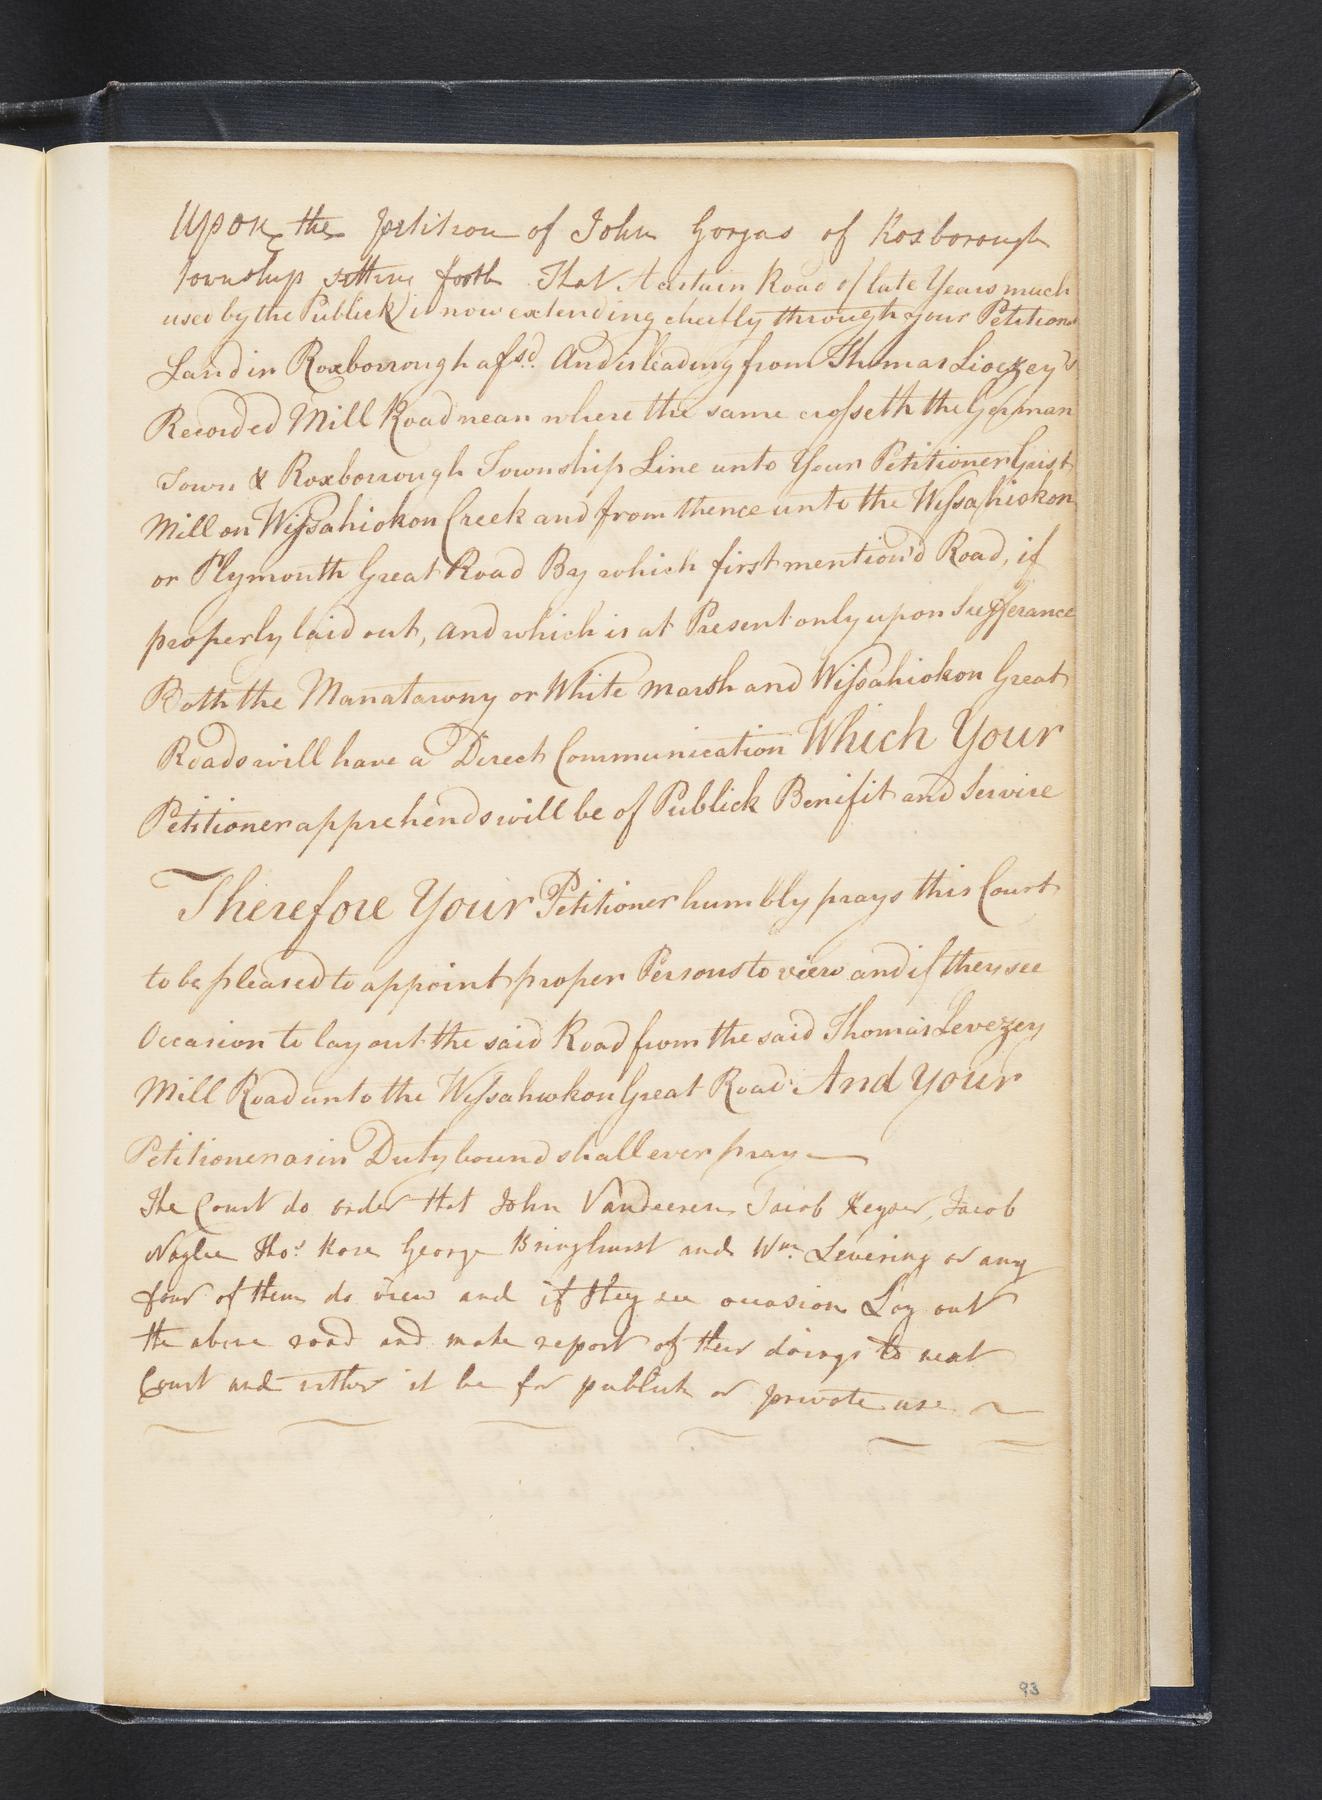 Upon the petition of John Gorgas of Roxborough
Township setting forth That A certain Road of late Years much
used by the Publick is now extending cheifly through your Petitioner
Land in Roxborrough afsd. And is leading from Thomas Livezey's
Recorded Mill Road near where the same crosseth the German
Town & Roxborrough Township Line unto Your Petitioner Grist
Mill on Wissahickon Creek and from thence unto the Wissahickon
or Plymouth Great Road By which first mention'd Road, if
properly laid out, and which is at Present only upon Sufferance
Both the Manatawny or White marsh and Wissahickon Great
Roads will have a Direct Communication Which Your
Petitioner apprehends will be of Publick Benifit and Service
Therefore Your Petitioner humbly prays this Court
to be pleased to appoint proper Persons to view and if they see
Occasion to lay out the said Road from the said Thomas Levezey
Mill Road unto the Wissahickon Great Road And Your
Petitioner as in Duty bound shall ever pray
The Court do order that John Vandeeren Jacob Keyser, Jacob
Naglee Thos. Rose George Bringhurst and Wm. Levering or any
four of them do view and if they see occasion Lay out
the above road and make report of their doings to next
Court and wither it be for publick or private use
93